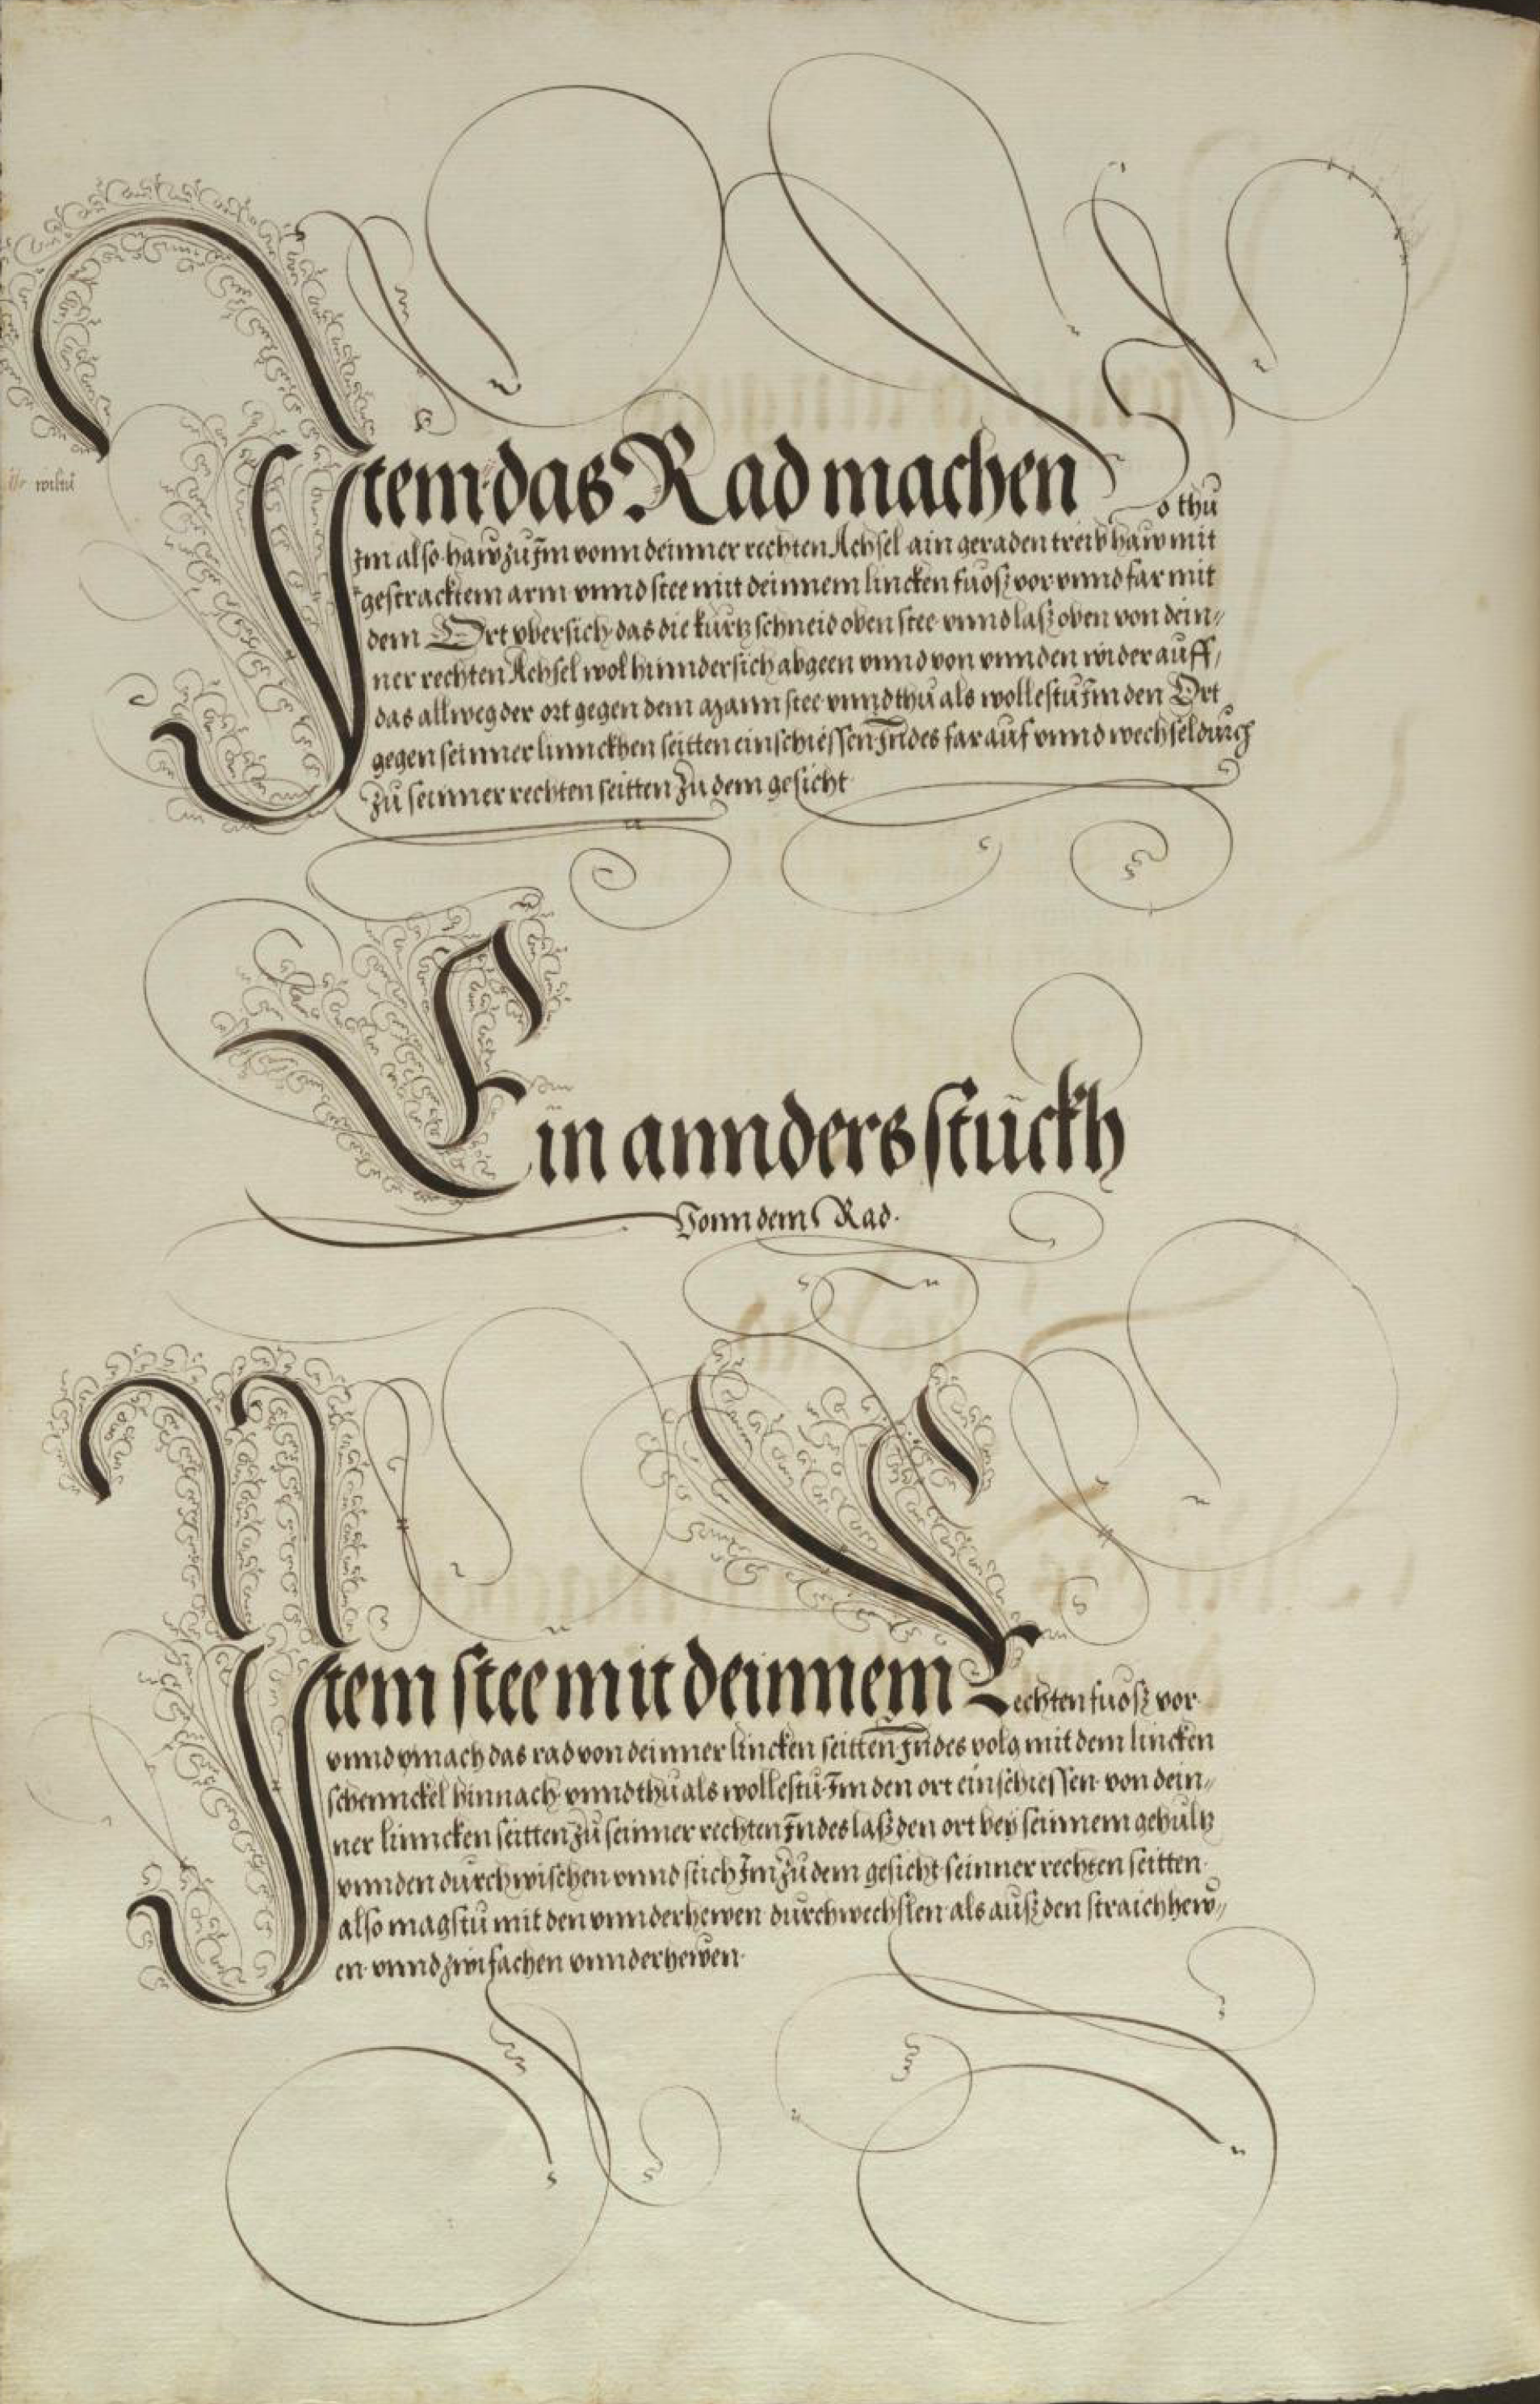 wiltu
Item das Rad machen So thu
Im also haw zu Im vonn deinner rechten Achsel ain geraden treib haw mit
gestracktem arm vnnd stee mit deinnem lincken fuosz vor vnnd far mit
dem Ort vbersich das die kurtz schneid oben stee vnnd lasz oben von dein„
ner rechten Achsel wol hinndersich abgeen vnnd von vnnden wider auff,
das allweg der ort gegen dem mann stee vnnd thu als wollestu Im den Ort
gegen seinner linnckhen seitten einschiessen Indes far auf vnnd wechsel durch
zu seinner rechten seitten zu dem gesicht
Ein annders stuckh
Vonn dem Rad.
Item stee mit deinnem Rechten fuosz vor
vnnd mach das rad von deinner lincken seitten Indes volg mit dem lincken
schennckel hinnach vnnd thu als wollestu Im den ort einschiessen von dein„
ner linncken seitten zu seinner rechten Indes lasz den ort bey seinnem gehultz
vnnden durchwischen vnnd stich Im zu dem gesicht seinner rechten seitten
also magstu mit den vnnderhewen durchwechslen als ausz den straichhew„
en vnnd zwifachen vnnderhewen